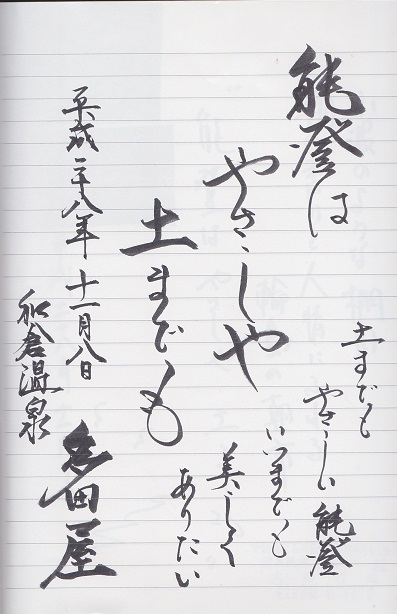 能登は
やさしや
土までも
土までも
やさしい能登
いつまでも
美しく
ありたい
平成二十八年十一月八日
和倉温泉
多田屋